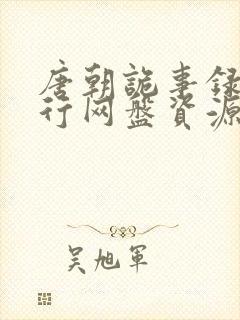 唐朝詭事録
行网盤資源
吴旭军